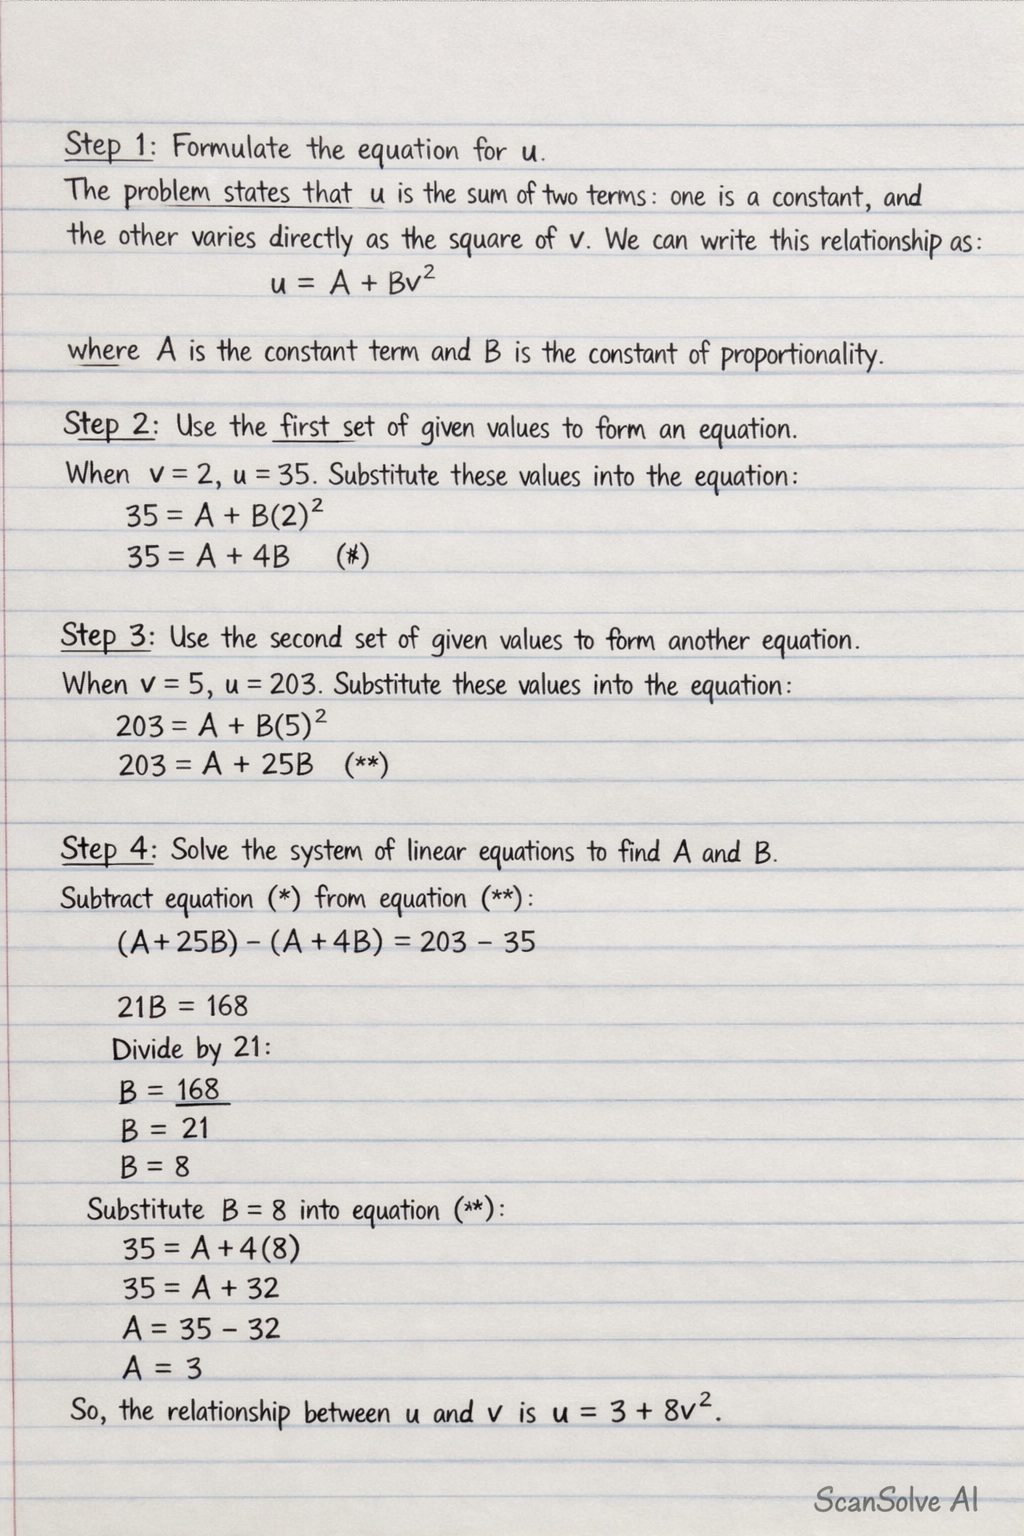 Step 1: Formulate the equation for u.
The problem states that u is the sum of two terms: one is a constant, and
the other varies directly as the square of v. We can write this relationship as:
u = A + Bv²
where A is the constant term and B is the constant of proportionality.
Step 2: Use the first set of given values to form an equation.
When v = 2, u = 35. Substitute these values into the equation:
35 = A + B(2)²
35 = A + 4B (*)
Step 3: Use the second set of given values to form another equation.
When v = 5, u = 203. Substitute these values into the equation:
203 = A + B(5)²
203 = A + 25B (**)
Step 4: Solve the system of linear equations to find A and B.
Subtract equation (*) from equation (**):
(A + 25B) – (A + 4B) = 203 – 35
21B = 168
Divide by 21:
B = 168
B = 21
B = 8
Substitute B = 8 into equation (**):
35 = A + 4(8)
35 = A + 32
A = 35 – 32
A = 3
So, the relationship between u and v is u = 3 + 8v².
ScanSolve AI